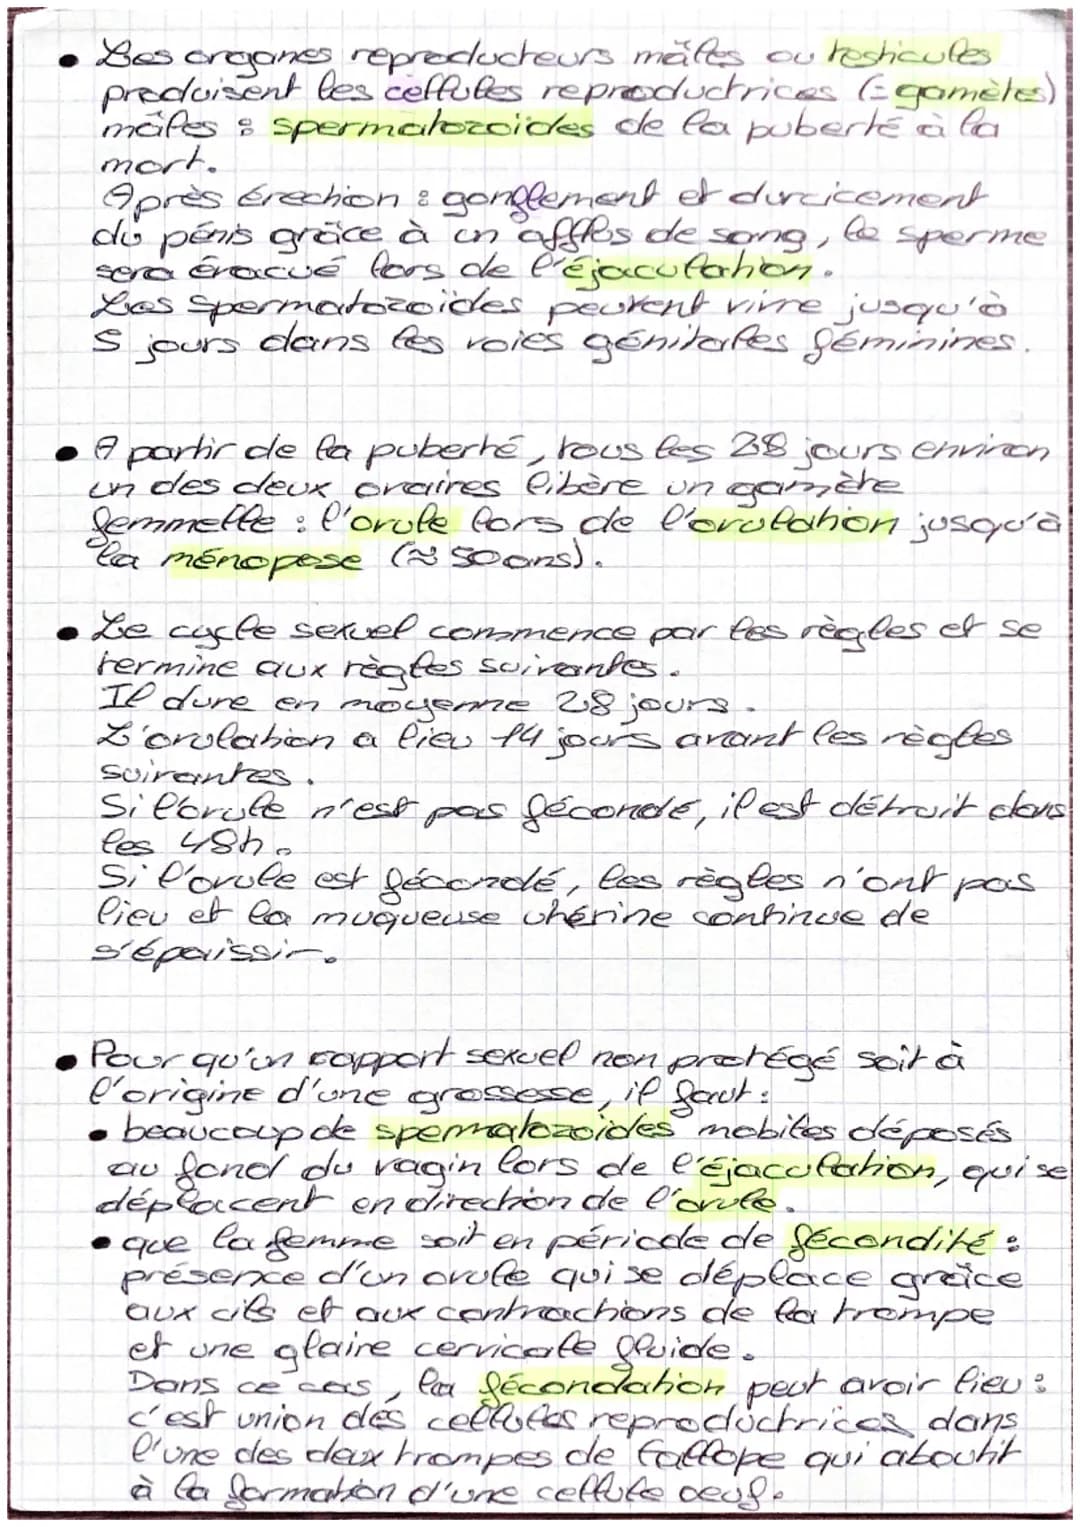 • Les organes reproducteurs mâles ou testicules
produisent les cellules reproductrices (= gamètes)
mâles : spermatozoïdes de la puberté à la
mort.
Après érection : gonflement et durcicement
du pénis grâce à un afflus de sang, le sperme
sera évacué lors de l'éjaculation.
Les spermatozoïdes peuvent vivre jusqu'à
5 jours dans les voies génitales féminines.
• A partir de la puberté, tous les 28 jours environ
un des deux ovaires libère un gamète
femmelle : l'ovule lors de l'ovulation jusqu'à
la ménopose (≈ 50 ans).
• Le cycle sexuel commence par les règles et se
termine aux règles suivantes.
Il dure en moyenne 28 jours.
L'ovulation a lieu 14 jours avant les règles
suivantes.
Si l'ovule n'est pas fécondé, il est détruit dans
les 48h.
Si l'ovule est fécondé, les règles n'ont pas
lieu et la muqueuse utérine continue de
s'épaissir.
• Pour qu'un rapport sexuel non protégé soit à
l'origine d'une grossesse, il faut :
• beaucoup de spermatozoïdes mobiles déposés
au fond du vagin lors de l'éjaculation, qui se
déplacent en direction de l'ovule.
• que la femme soit en période de fécondité :
présence d'un ovule qui se déplace grâce
aux cils et aux contractions de la trompe
et une glaire cervicale fluide.
Dans ce cas, la fécondation peut avoir lieu :
c'est union des cellules reproductrices dans
l'une des deux trompes de Fallope qui aboutit
à la formation d'une cellule oeuf.